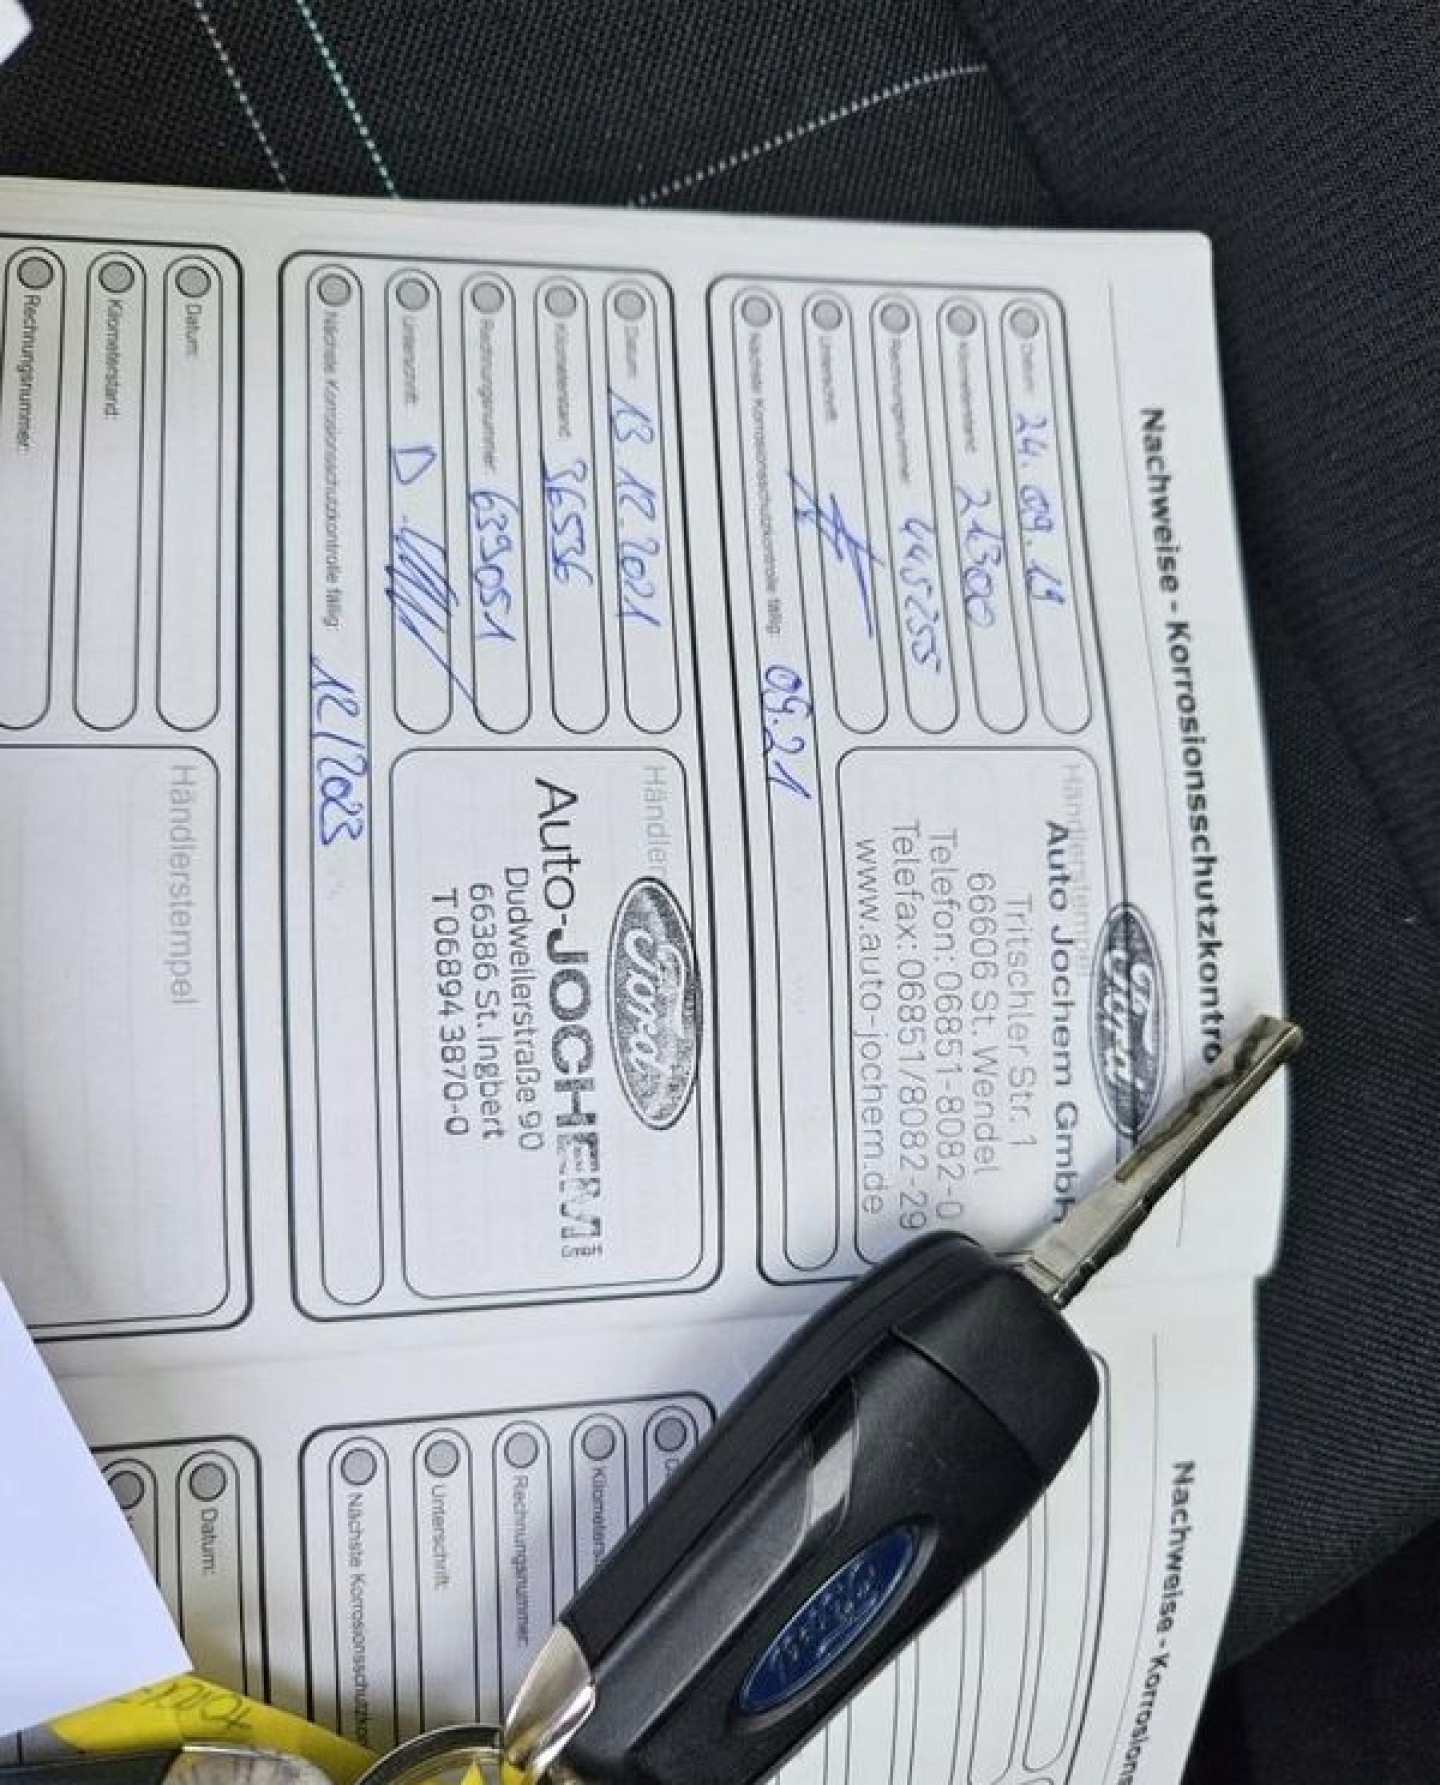 Nachweise - Korrosionsschutzkontro
Datum: 24.09.19
Kilometerstand: 21300
Rechnungsnummer: 445255
Unterschrift:
Nächste Korrosionsschutzkontrolle fällig: 09.21
Händlerstempel
Ford
Auto Jochem GmbH
Tritschler Str. 1
66606 St. Wendel
Telefon: 06851-8082-0
Telefax: 06851/8082-29
www.auto-jochem.de
Datum: 13.12.2021
Kilometerstand: 36536
Rechnungsnummer: 639051
Unterschrift:
Nächste Korrosionsschutzkontrolle fällig: 12/2023
Händler
Ford
Auto-JOCHEM
GmbH
Dudweilerstraße 90
66386 St. Ingbert
T 06894 3870-0
Datum:
Kilometerstand:
Rechnungsnummer:
Händlerstempel
Nachweise - Korrosions
D
Kilometers
Rechnungsnummer:
Unterschrift:
Nächste Korrosionsschutzko
Datum:
Ford